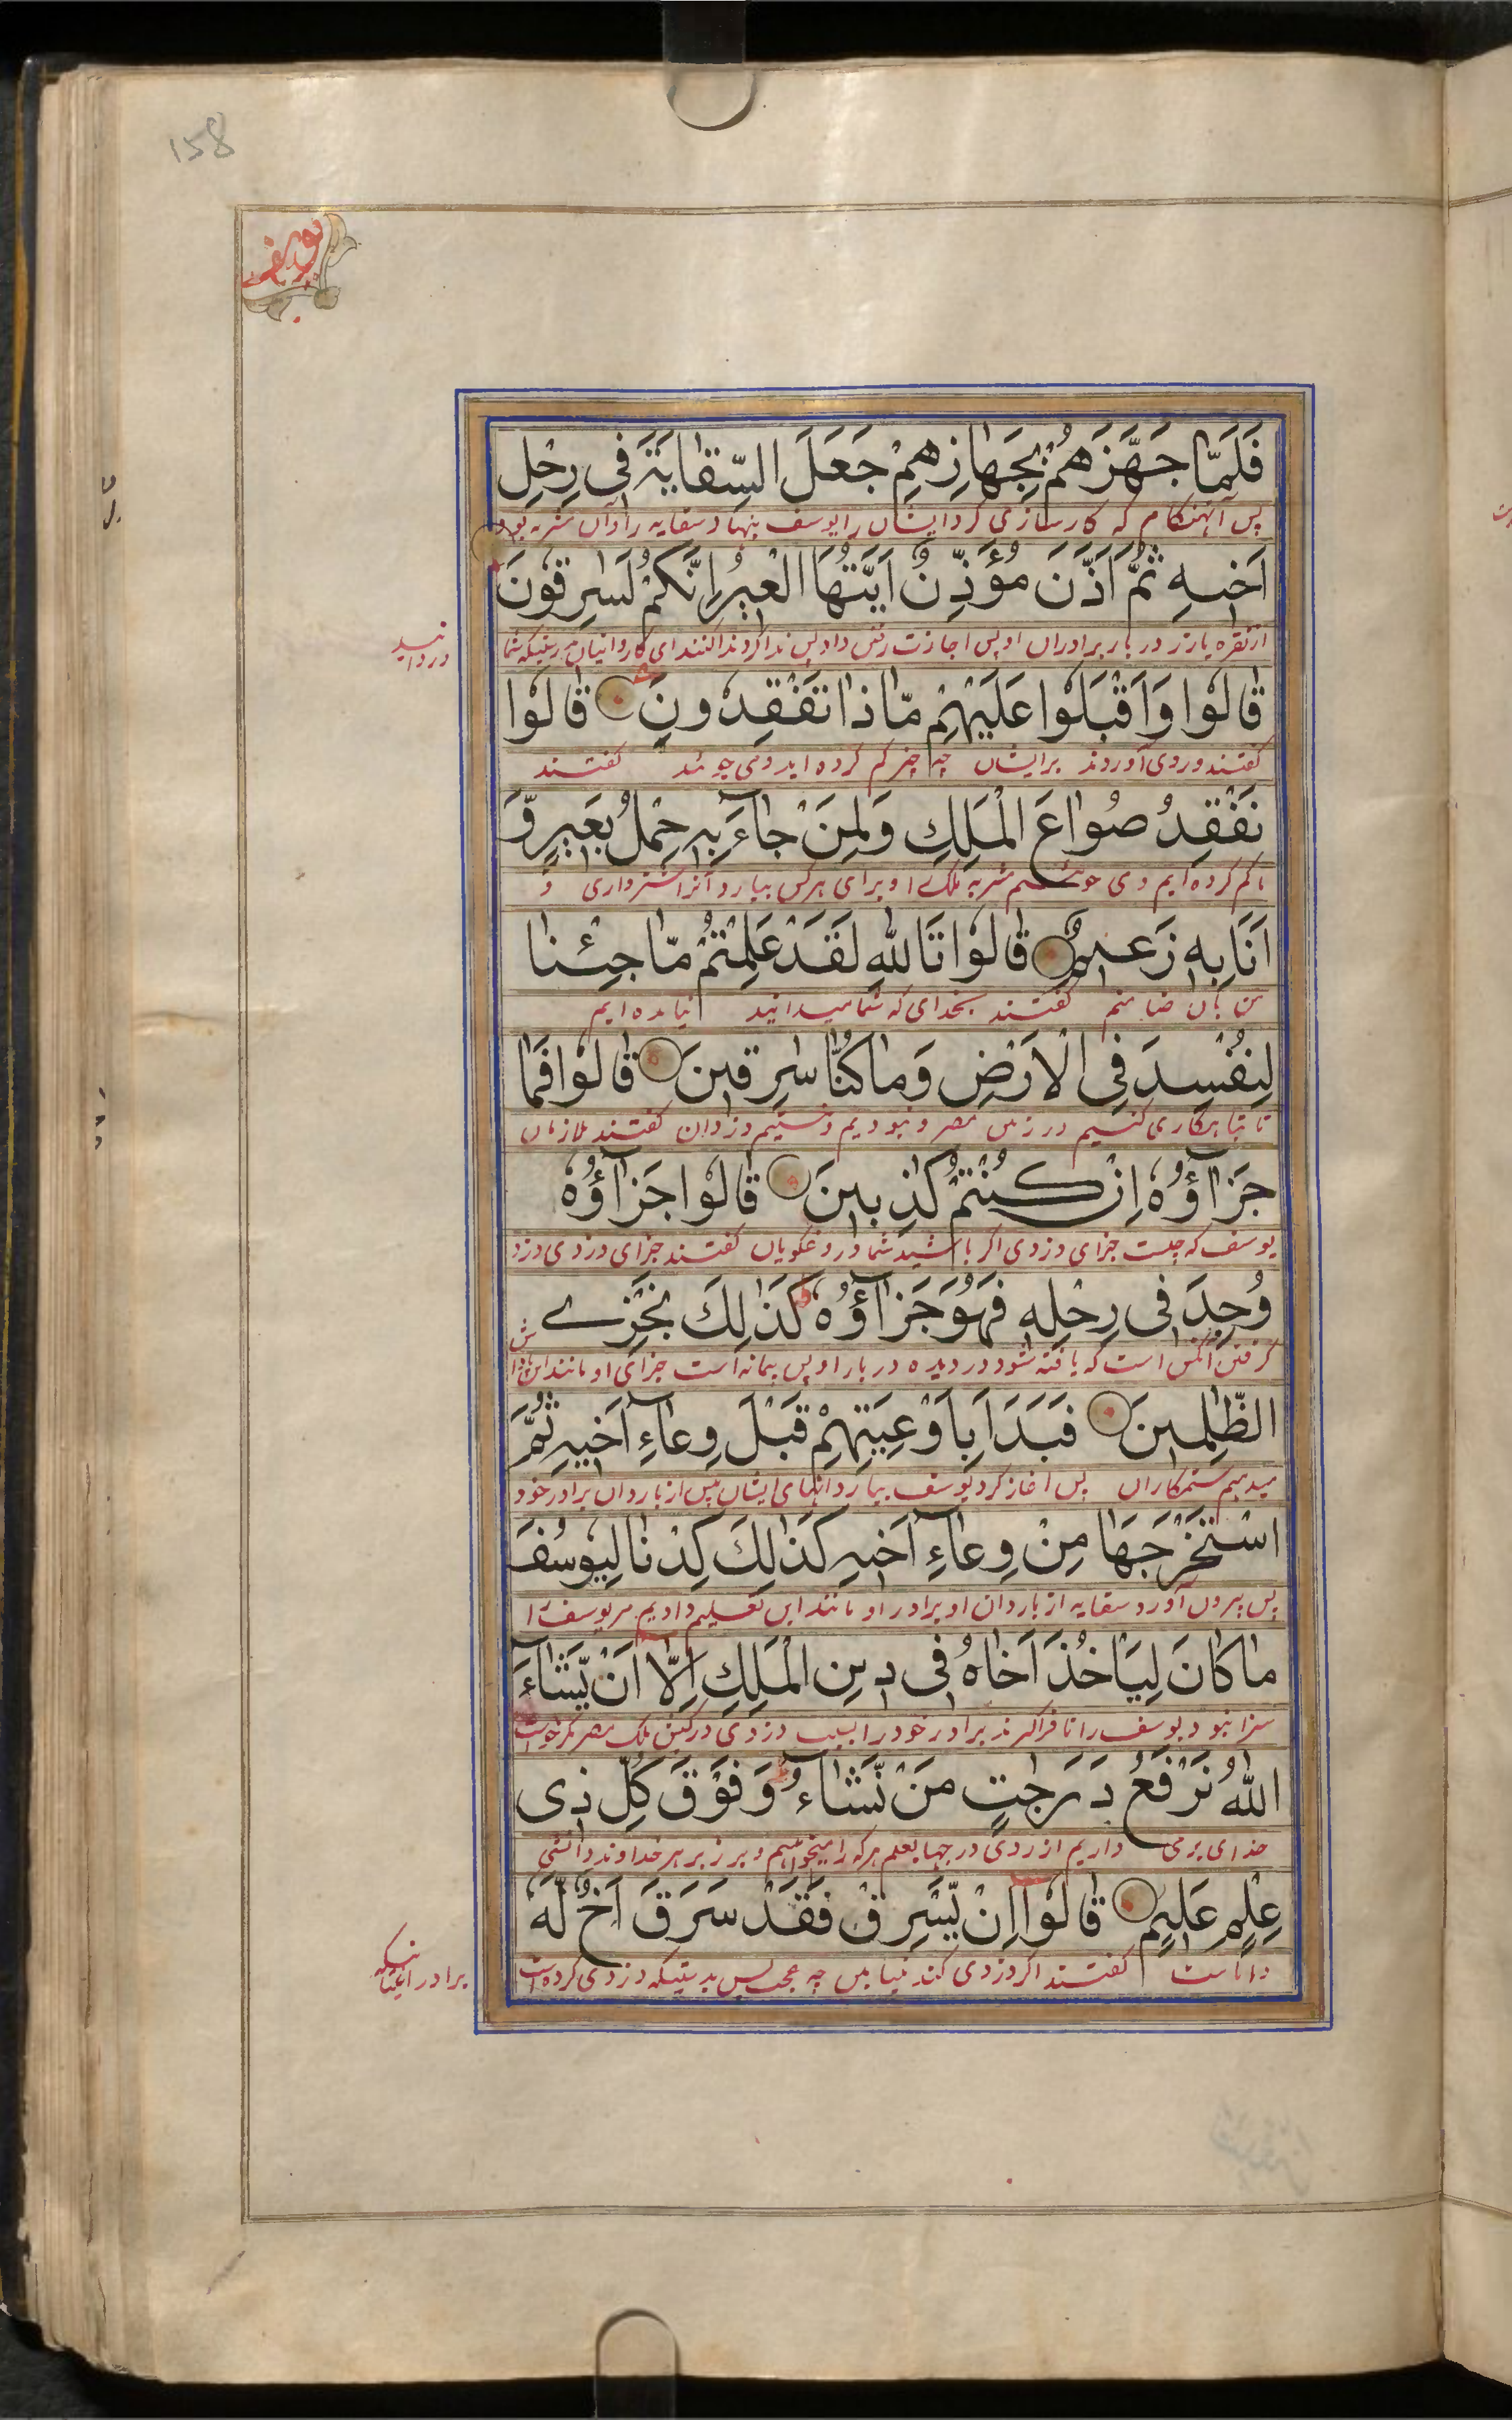 158
یوسف
فَلَمّا جَهَّزَهُمْ بِجَهازِهِمْ جَعَلَ السِّقایَةَ فی رَحْلِ
پس آنهنگام که کارسازی کرد ایشان را یوسف بنهاد سقایه را و آن مشربه بود
اَخیهِ ثُمَّ اَذَّنَ مُؤَذِّنٌ اَیَّتُهَا الْعیرُ اِنَّکُمْ لَسارِقُونَ
از نقره یا زر در بار برادران او پس اجازت رفتن داد پس ندا کردند ای کاروانیان بدرستیکه شما
دزدانید
قالُوا وَاَقْبَلُوا عَلَیْهِمْ مّاذا تَفْقِدُونَ قالُوا
گفتند و روی آوردند برایشان چه چیز گم کرده اید و می جوئید گفتند
نَفْقِدُ صُواعَ الْمَلِکِ وَلِمَنْ جآءَ بِهِ حِمْلُ بَعیرٍ وَّ
ما گم کرده ایم و می جوئیم مشربه ملک را و برای هر کس بیارد آنرا شترواری و
اَنَا بِهِ زَعیمٌ قالُوا تَاللّهِ لَقَدْ عَلِمْتُمْ مّا جِئْنا
من بآن ضامنم گفتند بخدای که شما میدانید نیامده ایم
لِنُفْسِدَ فِی الْاَرْضِ وَما کُنّا سارِقینَ قالُوا فَما
تا تباهکاری کنیم در زمین مصر و نبودیم و نیستیم دزدان گفتند ملازمان
جَزآؤُهُ اِنْ کُنْتُمْ کٰذِبینَ قالُوا جَزآؤُهُ
یوسف که چیست جزای دزدی اگر باشید شما دروغگویان گفتند جزای دزدی دزد
وُجِدَ فی رَحْلِهِ فَهُوَ جَزآؤُهُ کَذٰلِکَ نَجْزِے
گرفتن آنکس است که یافته شود دزدیده در بار او پس پیمانه است جزای او مانند این جزا
الظّٰلِمینَ فَبَدَاَ بِاَوْعِیَتِهِمْ قَبْلَ وِعآءِ اَخیهِ ثُمَّ
میدهیم ستمکاران پس آغاز کرد یوسف ببار دانهای ایشان پیش از باردان برادر خود
اسْتَخْرَجَها مِنْ وِعآءِ اَخیهِ کَذٰلِکَ کِدْنا لِیُوسُفَ
پس بیرون آورد سقایه از باردان او برادر او مانند این تعلیم دادیم مر یوسف را
ما کانَ لِیَاْخُذَ اَخاهُ فی دینِ الْمَلِکِ اِلّا اَنْ یَّشآءَ
سزا نبود یوسف را تا فراگیرد برادر خود را بسبب دزدی در کیش ملک مصر مگر خواست
اللّهُ نَرْفَعُ دَرَجٰتٍ مَنْ نَّشآءُ وَفَوْقَ کُلِّ ذی
خدای بر می داریم از روی درجها بعلم هر که را میخواهیم و بر زبر هر خداوند دانشی
عِلْمٍ عَلیمٌ قالُوا اِنْ یَّسْرِقْ فَقَدْ سَرَقَ اَخٌ لَّهُ
داناست گفتند اگر دزدی کند چه عجب پس بدرستیکه دزدی کرده است
برادر